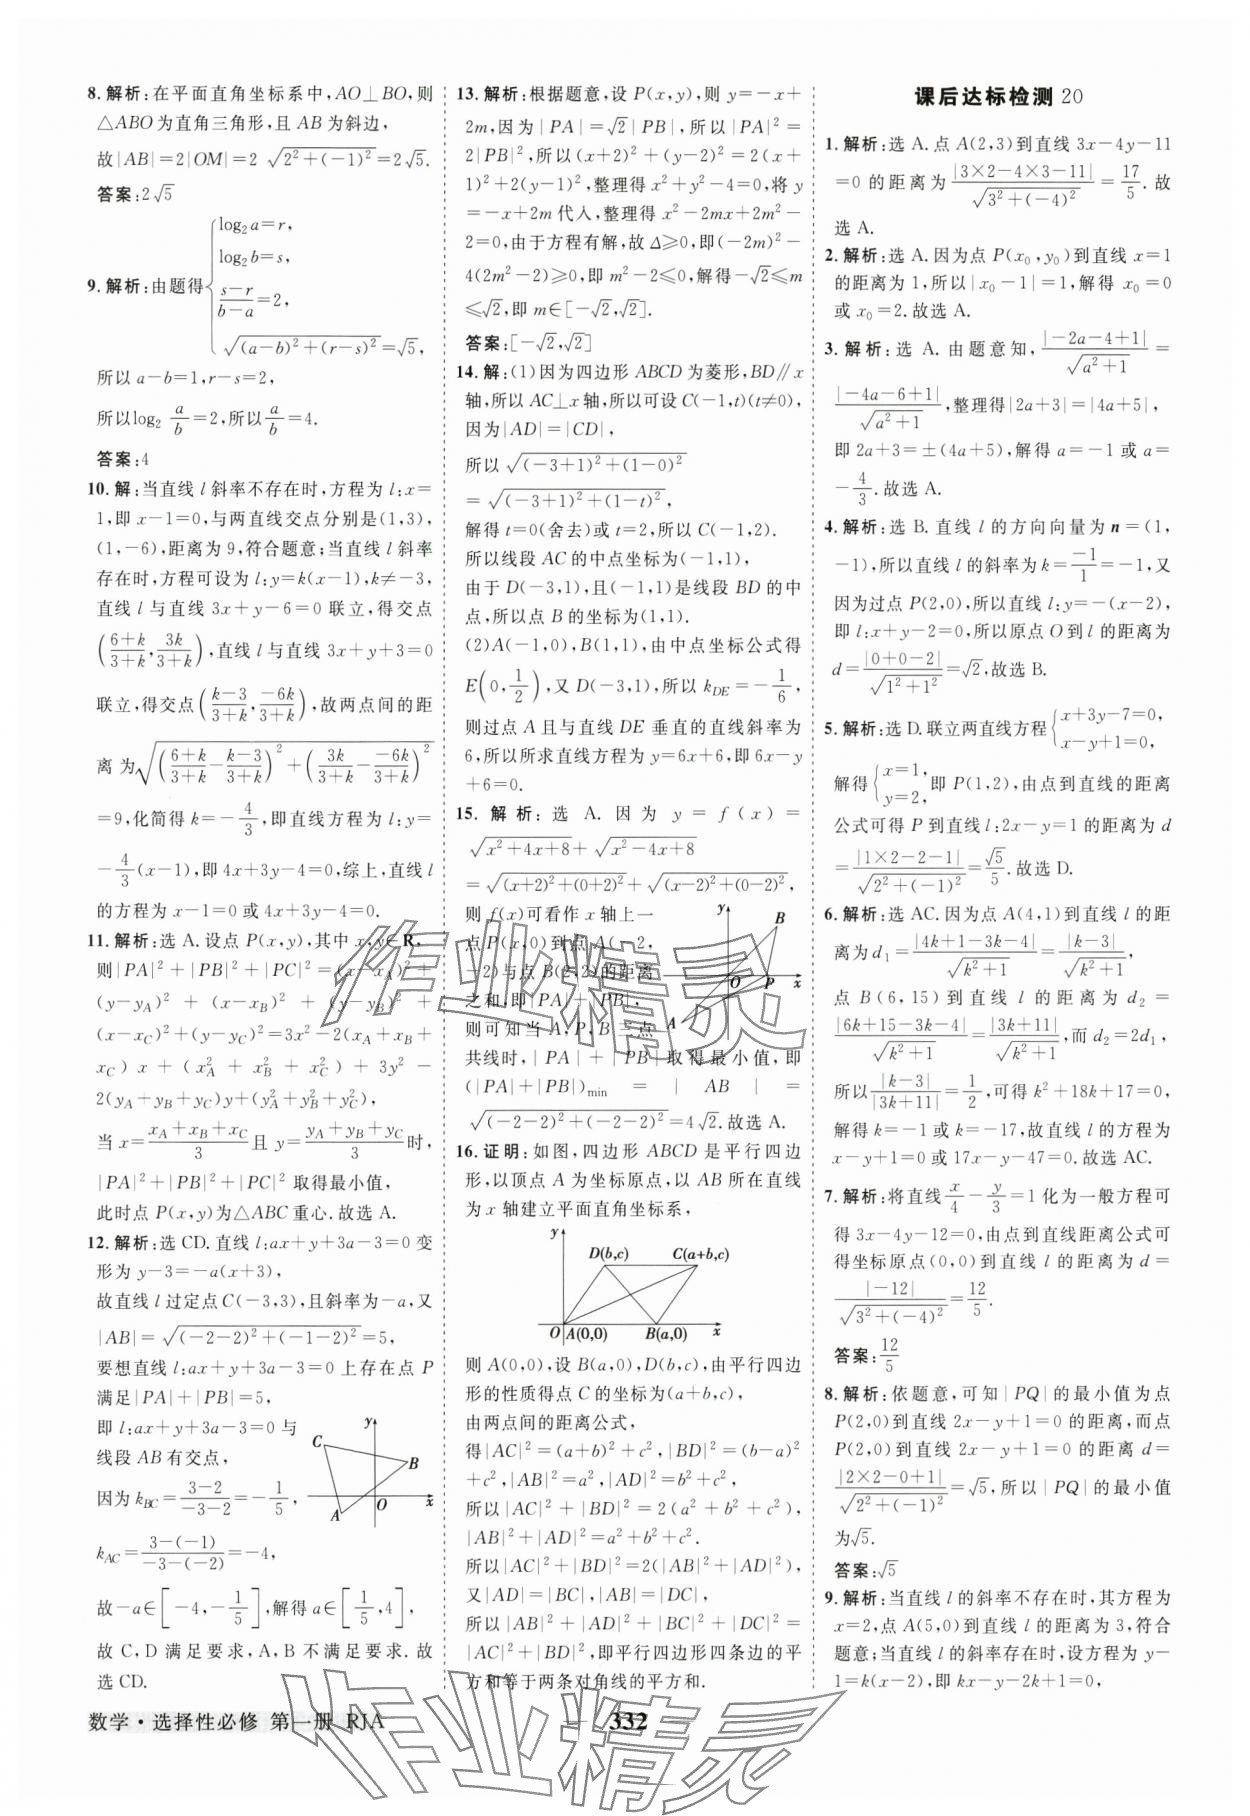 8. 解析:在平面直角坐标系中,AO⊥BO,则
△ABO为直角三角形,且AB为斜边,
故|AB|=2|OM|=2 √(2²+(-1)²)=2√5.
答案:2√5
9. 解析:由题得{log₂a=r,
log₂b=s,
(s-r)/(b-a)=2,
√((a-b)²+(r-s)²)=√5,
所以a-b=1,r-s=2,
所以log₂ a/b=2,所以a/b=4.
答案:4
10. 解:当直线l斜率不存在时,方程为l:x=
1,即x-1=0,与两直线交点分别是(1,3),
(1,-6),距离为9,符合题意;当直线l斜率
存在时,方程可设为l:y=k(x-1),k≠-3,
直线l与直线3x+y-6=0联立,得交点
((6+k)/(3+k),3k/(3+k)),直线l与直线3x+y+3=0
联立,得交点((k-3)/(3+k),-6k/(3+k)),故两点间的距
离为√(((6+k)/(3+k)-(k-3)/(3+k))²+(3k/(3+k)-(-6k)/(3+k))²)
=9,化简得k=-4/3,即直线方程为l:y=
-4/3(x-1),即4x+3y-4=0,综上,直线l
的方程为x-1=0或4x+3y-4=0.
11. 解析:选A.设点P(x,y),其中x,y∈R,
则|PA|²+|PB|²+|PC|²=(x-x_A)²+
(y-y_A)²+(x-x_B)²+(y-y_B)²+
(x-x_C)²+(y-y_C)²=3x²-2(x_A+x_B+
x_C)x+(x_A²+x_B²+x_C²)+3y²-
2(y_A+y_B+y_C)y+(y_A²+y_B²+y_C²),
当x=(x_A+x_B+x_C)/3且y=(y_A+y_B+y_C)/3时,
|PA|²+|PB|²+|PC|²取得最小值,
此时点P(x,y)为△ABC重心.故选A.
12. 解析:选CD.直线l:ax+y+3a-3=0变
形为y-3=-a(x+3),
故直线l过定点C(-3,3),且斜率为-a,又
|AB|=√((-2-2)²+(-1-2)²)=5,
要想直线l:ax+y+3a-3=0上存在点P
满足|PA|+|PB|=5,
即l:ax+y+3a-3=0与
线段AB有交点,
因为k_BC=(3-2)/(-3-2)=-1/5,
k_AC=(3-(-1))/(-3-(-2))=-4,
故-a∈[-4,-1/5],解得a∈[1/5,4],
故C,D满足要求,A,B不满足要求.故
选CD.
y
C
B
A
O
x
13. 解析:根据题意,设P(x,y),则y=-x+
2m,因为|PA|=√2|PB|,所以|PA|²=
2|PB|²,所以(x+2)²+(y-2)²=2(x+
1)²+2(y-1)²,整理得x²+y²-4=0,将y
=-x+2m代入,整理得x²-2mx+2m²-
2=0,由于方程有解,故Δ≥0,即(-2m)²-
4(2m²-2)≥0,即m²-2≤0,解得-√2≤m
≤√2,即m∈[-√2,√2].
答案:[-√2,√2]
14. 解:(1)因为四边形ABCD为菱形,BD∥x
轴,所以AC⊥x轴,所以可设C(-1,t)(t≠0),
因为|AD|=|CD|,
所以√((-3+1)²+(1-0)²
=√((-3+1)²+(1-t)²),
解得t=0(舍去)或t=2,所以C(-1,2).
所以线段AC的中点坐标为(-1,1),
由于D(-3,1),且(-1,1)是线段BD的中
点,所以点B的坐标为(1,1).
(2)A(-1,0),B(1,1),由中点坐标公式得
E(0,1/2),又D(-3,1),所以k_DE=-1/6,
则过点A且与直线DE垂直的直线斜率为
6,所以所求直线方程为y=6x+6,即6x-y
+6=0.
15. 解析:选A.因为y=f(x)=
√(x²+4x+8)+√(x²-4x+8)
=√((x+2)²+(0+2)²)+√((x-2)²+(0-2)²),
则f(x)可看作x轴上一
点P(x,0)到点A(-2,
-2)与点B(2,2)的距离
之和,即|PA|+|PB|,
则可知当A,P,B三点
共线时,|PA|+|PB|取得最小值,即
(|PA|+|PB|)min=|AB|=
√((-2-2)²+(-2-2)²)=4√2.故选A.
y
B
O
P
x
A
16. 证明:如图,四边形ABCD是平行四边
形,以顶点A为坐标原点,以AB所在直线
为x轴建立平面直角坐标系,
y
D(b,c)
C(a+b,c)
O
A(0,0)
B(a,0)
x
则A(0,0),设B(a,0),D(b,c),由平行四边
形的性质得点C的坐标为(a+b,c),
由两点间的距离公式,
得|AC|²=(a+b)²+c²,|BD|²=(b-a)²
+c²,|AB|²=a²,|AD|²=b²+c²,
所以|AC|²+|BD|²=2(a²+b²+c²),
|AB|²+|AD|²=a²+b²+c².
所以|AC|²+|BD|²=2(|AB|²+|AD|²),
又|AD|=|BC|,|AB|=|DC|,
所以|AB|²+|AD|²+|BC|²+|DC|²=
|AC|²+|BD|²,即平行四边形四条边的平方
和等于两条对角线的平方和.
课后达标检测20
1. 解析:选A.点A(2,3)到直线3x-4y-11
=0的距离为|3×2-4×3-11|/√(3²+(-4)²)=17/5.故
选A.
2. 解析:选A.因为点P(x₀,y₀)到直线x=1
的距离为1,所以|x₀-1|=1,解得x₀=0
或x₀=2.故选A.
3. 解析:选A.由题意知,|-2a-4+1|/√(a²+1)=
|-4a-6+1|/√(a²+1),整理得|2a+3|=|4a+5|,
即2a+3=±(4a+5),解得a=-1或a=
-4/3.故选A.
4. 解析:选B.直线l的方向向量为n=(1,
-1),所以直线l的斜率为k=-1/1=-1,又
因为过点P(2,0),所以直线l:y=-(x-2),
即l:x+y-2=0,所以原点O到l的距离为
d=|0+0-2|/√(1²+1²)=√2,故选B.
5. 解析:选D.联立两直线方程{x+3y-7=0,
x-y+1=0,
解得{x=1,
y=2,即P(1,2),由点到直线的距离
公式可得P到直线l:2x-y=1的距离为d
=|1×2-2-1|/√(2²+(-1)²)=√5/5.故选D.
6. 解析:选AC.因为点A(4,1)到直线l的距
离为d₁=|4k+1-3k-4|/√(k²+1)=|k-3|/√(k²+1),
点B(6,15)到直线l的距离为d₂=
|6k+15-3k-4|/√(k²+1)=|3k+11|/√(k²+1),而d₂=2d₁,
所以|k-3|/|3k+11|=1/2,可得k²+18k+17=0,
解得k=-1或k=-17,故直线l的方程为
x-y+1=0或17x-y-47=0.故选AC.
7. 解析:将直线x/4-y/3=1化为一般方程可
得3x-4y-12=0,由点到直线距离公式可
得坐标原点(0,0)到直线l的距离为d=
|-12|/√(3²+(-4)²)=12/5.
答案:12/5
8. 解析:依题意,可知|PQ|的最小值为点
P(2,0)到直线2x-y+1=0的距离,而点
P(2,0)到直线2x-y+1=0的距离d=
|2×2-0+1|/√(2²+(-1)²)=√5,所以|PQ|的最小值
为√5.
答案:√5
9. 解析:当直线l的斜率不存在时,其方程为
x=2,点A(5,0)到直线l的距离为3,符合
题意;当直线l的斜率存在时,设方程为y-
1=k(x-2),即kx-y-2k+1=0,
数学·选择性必修 第一册 RJA
332
作业精灵
作业精灵